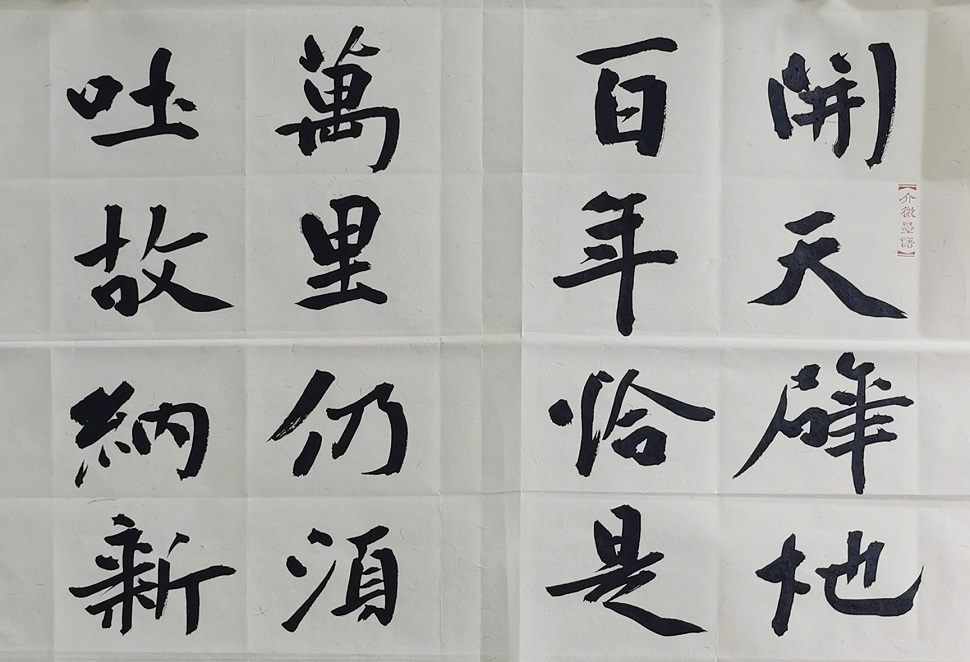 開天辟地
百年恰是
萬里仍須
吐故納新
介微墨譜